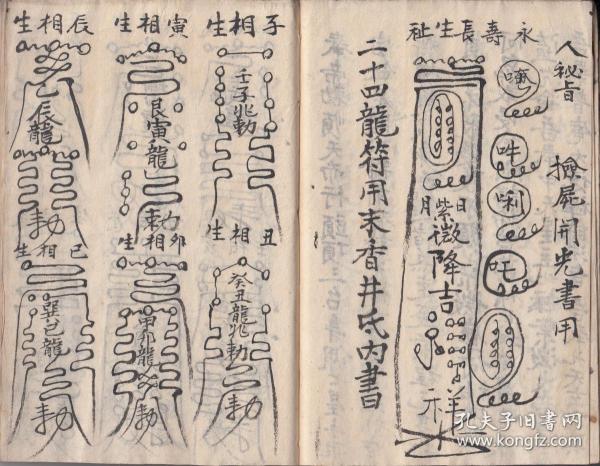 人秘旨 撿屍開光書用
永壽長生祉
唵
吽
唎
吒
日月
紫微降吉祥
二十四龍符用末香井氏内書
子相生
壬子兆勅
丑相生
癸丑龍兆勅
寅相生
艮寅龍
勅
卯相生
甲卯龍
勅
辰相生
乙辰龍
勅
巳相生
巽巳龍
勅
孔夫子旧书网
www.kongfz.com